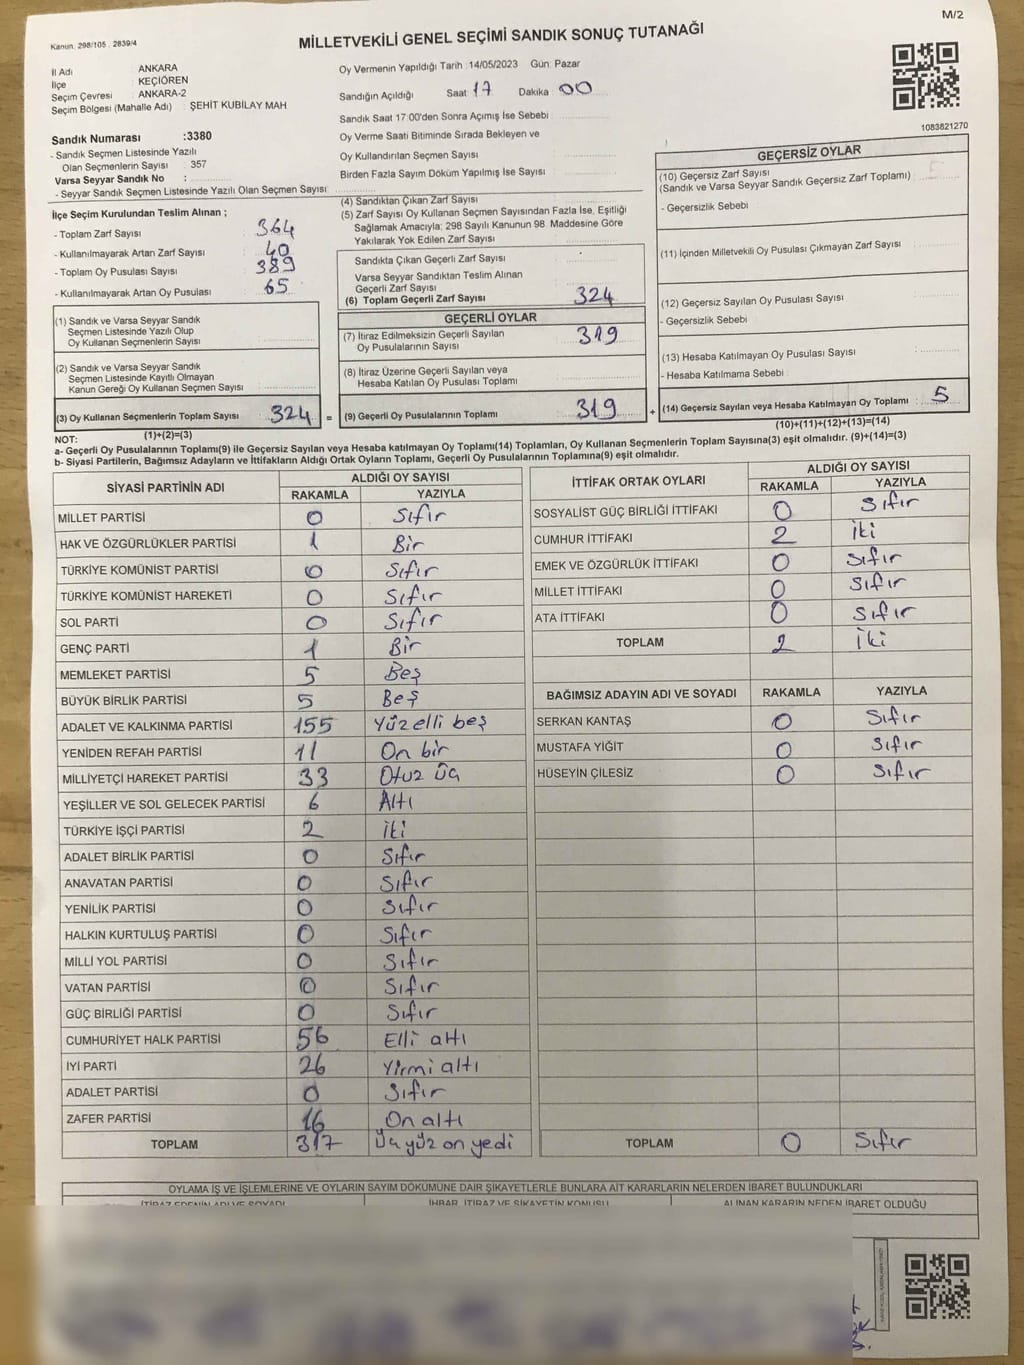 M/2
Kanun. 298/105 . 2839/4
MİLLETVEKİLİ GENEL SEÇİMİ SANDIK SONUÇ TUTANAĞI
İl Adı ANKARA
İlçe KEÇİÖREN
Seçim Çevresi ANKARA-2
Seçim Bölgesi (Mahalle Adı) : ŞEHİT KUBİLAY MAH
Sandık Numarası :3380
- Sandık Seçmen Listesinde Yazılı
Olan Seçmenlerin Sayısı : 357
Varsa Seyyar Sandık No :
- Seyyar Sandık Seçmen Listesinde Yazılı Olan Seçmen Sayısı :
Oy Vermenin Yapıldığı Tarih :14/05/2023 Gün: Pazar
Sandığın Açıldığı Saat 17 Dakika 00
Sandık Saat 17:00'den Sonra Açımış İse Sebebi
Oy Verme Saati Bitiminde Sırada Bekleyen ve
Oy Kullandırılan Seçmen Sayısı
Birden Fazla Sayım Döküm Yapılmış İse Sayısı
1083821270
İlçe Seçim Kurulundan Teslim Alınan ;
- Toplam Zarf Sayısı 364
- Kullanılmayarak Artan Zarf Sayısı 40
- Toplam Oy Pusulası Sayısı 389
- Kullanılmayarak Artan Oy Pusulası 65
(1) Sandık ve Varsa Seyyar Sandık
Seçmen Listesinde Yazılı Olup
Oy Kullanan Seçmenlerin Sayısı
(2) Sandık ve Varsa Seyyar Sandık
Seçmen Listesinde Kayıtlı Olmayan
Kanun Gereği Oy Kullanan Seçmen Sayısı
(3) Oy Kullanan Seçmenlerin Toplam Sayısı 324 =
(1)+(2)=(3)
(4) Sandıktan Çıkan Zarf Sayısı
(5) Zarf Sayısı Oy Kullanan Seçmen Sayısından Fazla İse, Eşitliği
Sağlamak Amacıyla; 298 Sayılı Kanunun 98. Maddesine Göre
Yakılarak Yok Edilen Zarf Sayısı
Sandıkta Çıkan Geçerli Zarf Sayısı
Varsa Seyyar Sandıktan Teslim Alınan
Geçerli Zarf Sayısı
(6) Toplam Geçerli Zarf Sayısı 324
GEÇERLİ OYLAR
(7) İtiraz Edilmeksizin Geçerli Sayılan
Oy Pusulalarının Sayısı 319
(8) İtiraz Üzerine Geçerli Sayılan veya
Hesaba Katılan Oy Pusulası Toplamı
(9) Geçerli Oy Pusulalarının Toplamı 319 +
GEÇERSİZ OYLAR
(10) Geçersiz Zarf Sayısı
(Sandık ve Varsa Seyyar Sandık Geçersiz Zarf Toplamı) :
- Geçersizlik Sebebi
(11) İçinden Milletvekili Oy Pusulası Çıkmayan Zarf Sayısı
(12) Geçersiz Sayılan Oy Pusulası Sayısı
- Geçersizlik Sebebi
(13) Hesaba Katılmayan Oy Pusulası Sayısı
- Hesaba Katılmama Sebebi
(14) Geçersiz Sayılan veya Hesaba Katılmayan Oy Toplamı : 5
(10)+(11)+(12)+(13)=(14)
NOT:
a- Geçerli Oy Pusulalarının Toplamı(9) ile Geçersiz Sayılan veya Hesaba katılmayan Oy Toplamı(14) Toplamları, Oy Kullanan Seçmenlerin Toplam Sayısına(3) eşit olmalıdır. (9)+(14)=(3)
b- Siyasi Partilerin, Bağımsız Adayların ve İttifakların Aldığı Ortak Oyların Toplamı, Geçerli Oy Pusulalarının Toplamına(9) eşit olmalıdır.
SİYASİ PARTİNİN ADI ALDIĞI OY SAYISI
RAKAMLA YAZIYLA
MİLLET PARTİSİ 0 Sıfır
HAK VE ÖZGÜRLÜKLER PARTİSİ 1 Bir
TÜRKİYE KOMÜNİST PARTİSİ 0 Sıfır
TÜRKİYE KOMÜNİST HAREKETİ 0 Sıfır
SOL PARTİ 0 Sıfır
GENÇ PARTİ 1 Bir
MEMLEKET PARTİSİ 5 Beş
BÜYÜK BİRLİK PARTİSİ 5 Beş
ADALET VE KALKINMA PARTİSİ 155 Yüzelli beş
YENİDEN REFAH PARTİSİ 11 On bir
MİLLİYETÇİ HAREKET PARTİSİ 33 Otuz üç
YEŞİLLER VE SOL GELECEK PARTİSİ 6 Altı
TÜRKİYE İŞÇİ PARTİSİ 2 İki
ADALET BİRLİK PARTİSİ 0 Sıfır
ANAVATAN PARTİSİ 0 Sıfır
YENİLİK PARTİSİ 0 Sıfır
HALKIN KURTULUŞ PARTİSİ 0 Sıfır
MİLLİ YOL PARTİSİ 0 Sıfır
VATAN PARTİSİ 0 Sıfır
GÜÇ BİRLİĞİ PARTİSİ 0 Sıfır
CUMHURİYET HALK PARTİSİ 56 Elli altı
İYİ PARTİ 26 Yirmi altı
ADALET PARTİSİ 0 Sıfır
ZAFER PARTİSİ 16 On altı
TOPLAM 317 Üç yüz on yedi
İTTİFAK ORTAK OYLARI ALDIĞI OY SAYISI
RAKAMLA YAZIYLA
SOSYALİST GÜÇ BİRLİĞİ İTTİFAKI 0 Sıfır
CUMHUR İTTİFAKI 2 İki
EMEK VE ÖZGÜRLÜK İTTİFAKI 0 Sıfır
MİLLET İTTİFAKI 0 Sıfır
ATA İTTİFAKI 0 Sıfır
TOPLAM 2 İki
BAĞIMSIZ ADAYIN ADI VE SOYADI RAKAMLA YAZIYLA
SERKAN KANTAŞ 0 Sıfır
MUSTAFA YİĞİT 0 Sıfır
HÜSEYİN ÇİLESİZ 0 Sıfır
TOPLAM 0 Sıfır
OYLAMA İŞ VE İŞLEMLERİNE VE OYLARIN SAYIM DÖKÜMÜNE DAİR ŞİKAYETLERLE BUNLARA AİT KARARLARIN NELERDEN İBARET BULUNDUKLARI
İTİRAZ EDENİN ADI VE SOYADI İHBAR, İTİRAZ VE ŞİKAYETİN KONUSU ALINAN KARARIN NEDEN İBARET OLDUĞU